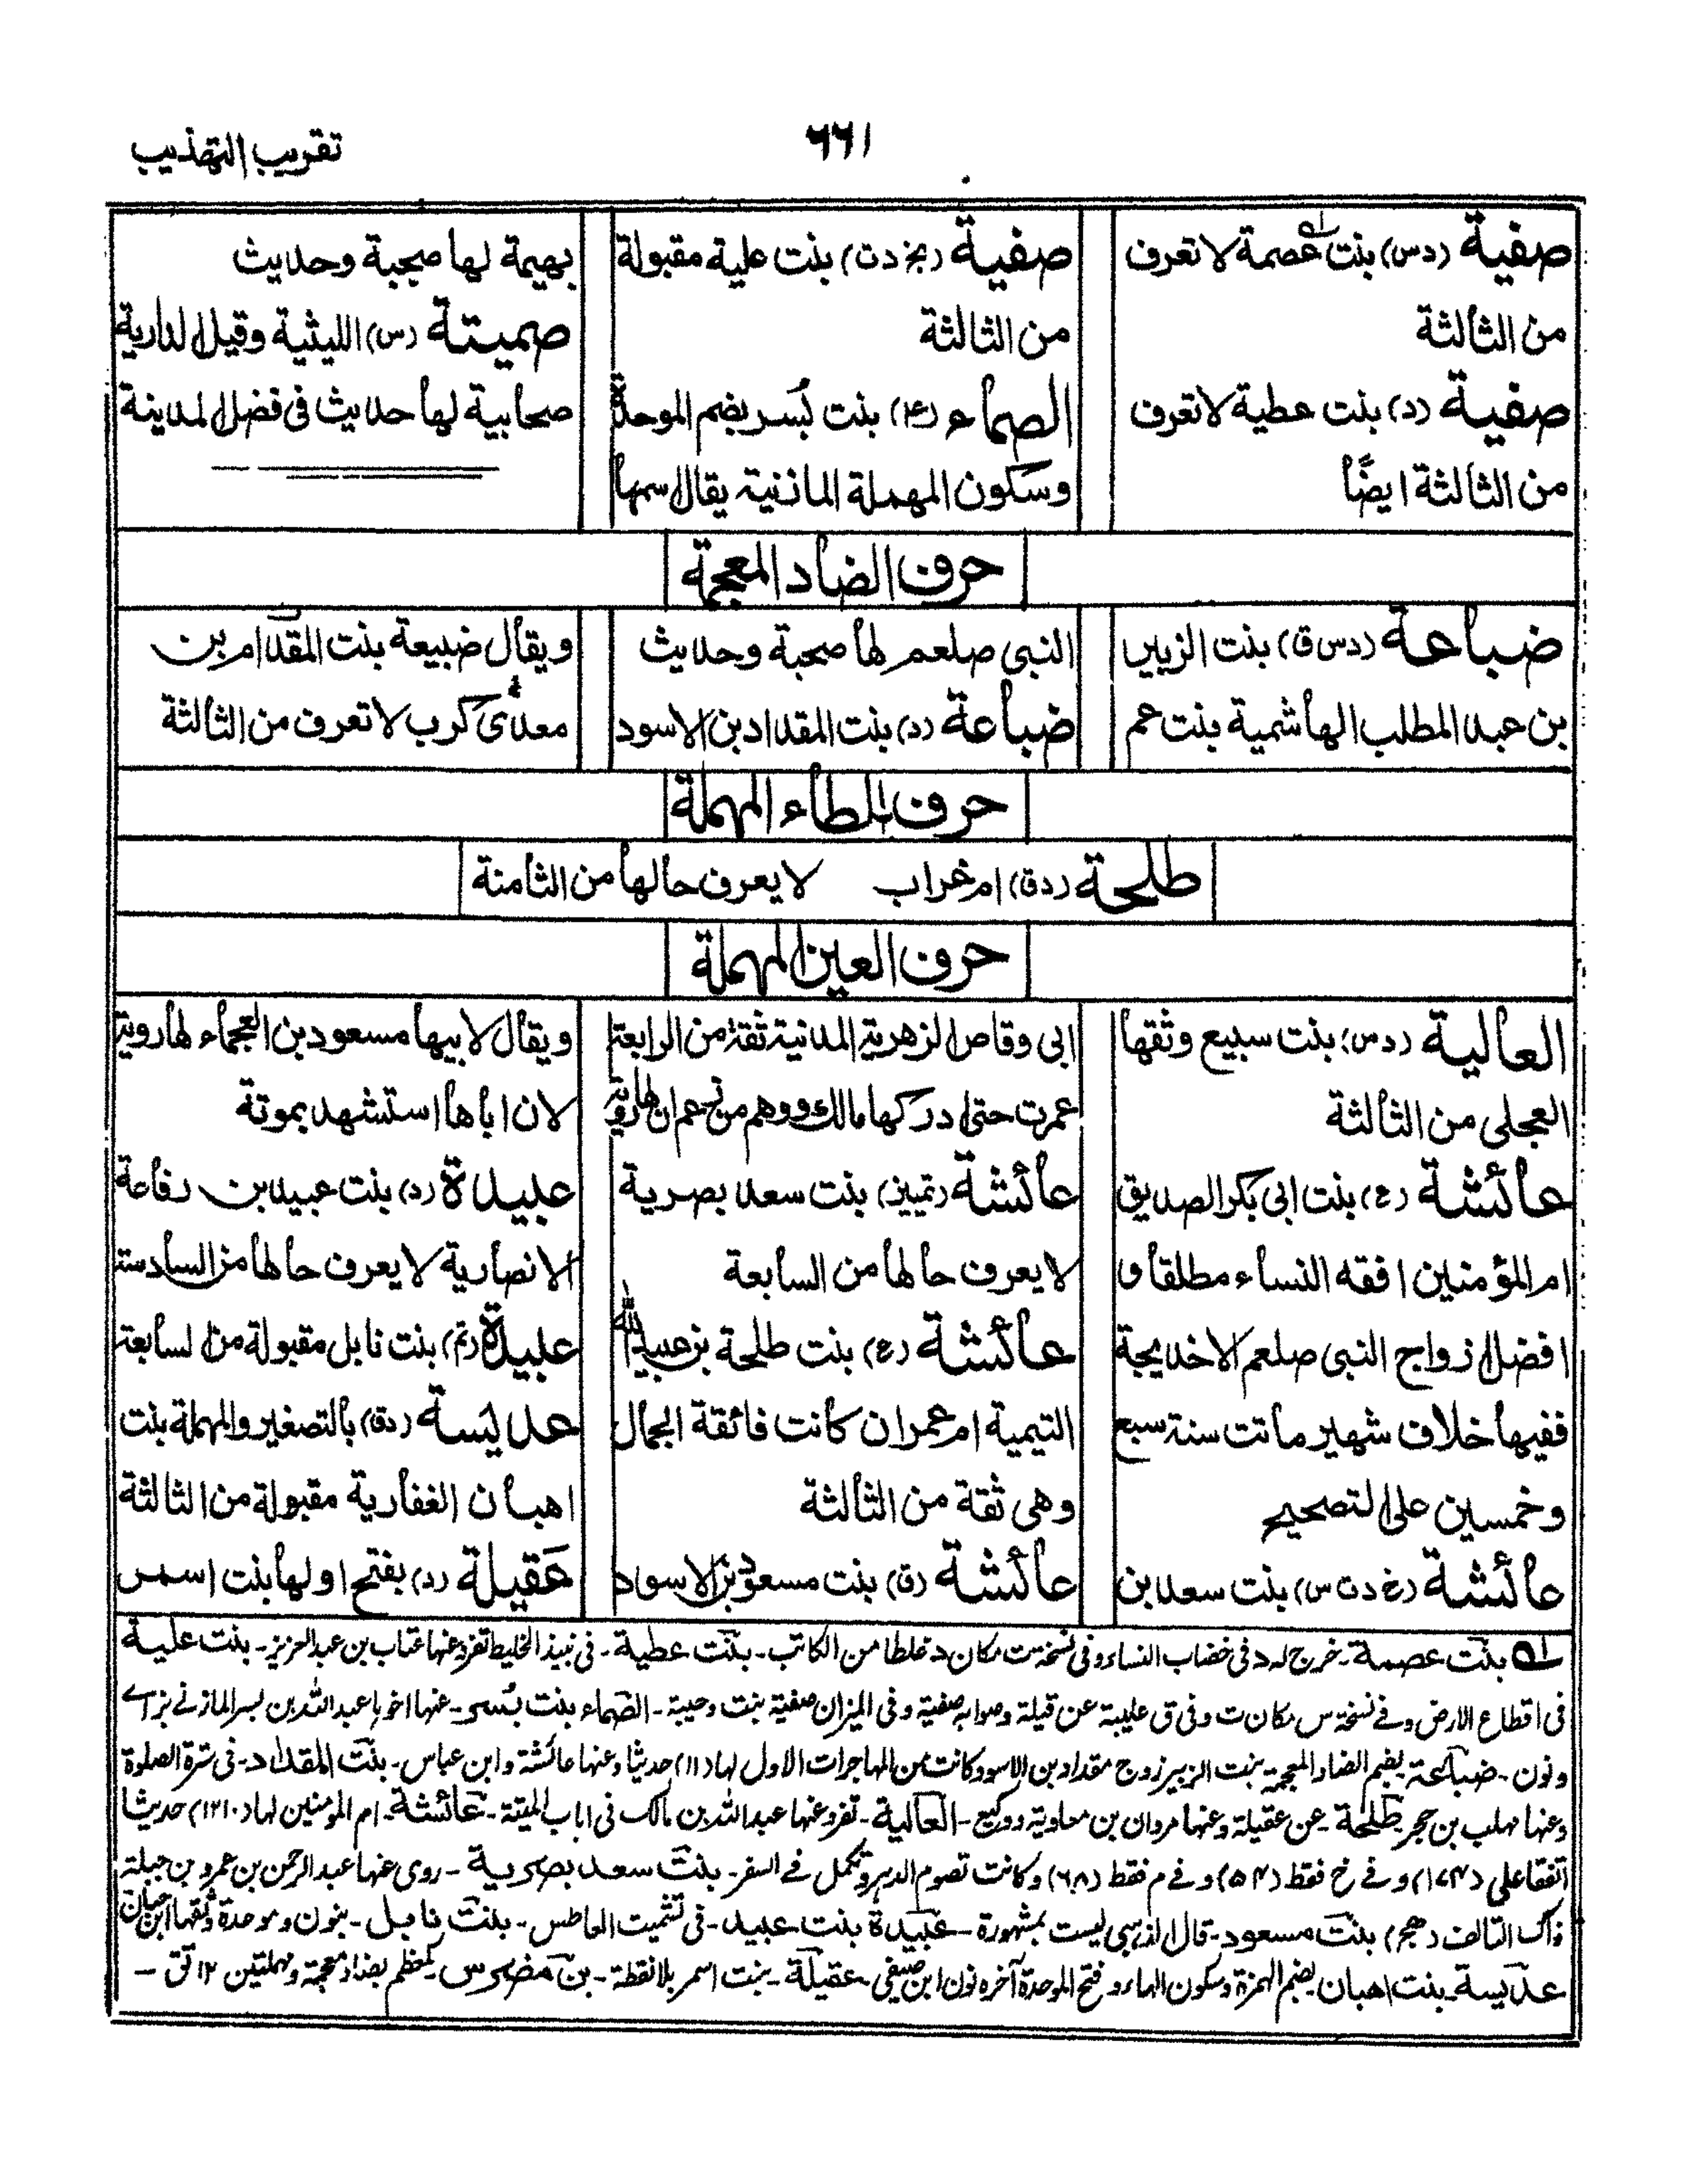 تقريب التهذيب
٦٦١
صفية (دس) بنت عصمة لا تعرف
من الثالثة
صفية (د) بنت عطية لا تعرف
من الثالثة ايضًا
صفية (بخ دت) بنت علية مقبولة
من الثالثة
الصماء (٤) بنت بُسر بضم الموحدة
وسكون المهملة المازنية يقال اسمها
بهيمة لها صحبة وحديث
صميتة (س) الليثية وقيل الدارية
صحابية لها حديث فى فضل المدينة
حرف الضاد المعجمة
ضباعة (دس ق) بنت الزبير
بن عبد المطلب الهاشمية بنت عم
النبى صلعم لها صحبة وحديث
ضباعة (د) بنت المقداد بن الاسود
ويقال ضبيعة بنت المقدام بن
معدى كرب لا تعرف من الثالثة
حرف الطاء المهملة
طلحة (دق) ام غراب لا يعرف حالها من الثامنة
حرف العين المهملة
العالية (دس) بنت سبيع وثقها
العجلى من الثالثة
عائشة (ع) بنت ابى بكر الصديق
ام المؤمنين افقه النساء مطلقا و
افضل ازواج النبى صلعم الا خديجة
ففيها خلاف شهير ماتت سنة سبع
وخمسين على التصحيح
عائشة (خ دت س) بنت سعد بن
ابى وقاص الزهرية المدنية ثقة من الرابعة
عمرت حتى ادركها مالك ووهم من زعم ان لها روية
عائشة (تمييز) بنت سعد بصرية
لا يعرف حالها من السابعة
عائشة (ع) بنت طلحة بن عبيد الله
التيمية ام عمران كانت فائقة الجمال
وهى ثقة من الثالثة
عائشة (ق) بنت مسعود بن الاسود
ويقال لابيها مسعود بن العجماء لها روية
لان اباها استشهد بموتة
عبيدة (د) بنت عبيد بن رفاعة
الانصارية لا يعرف حالها من السادسة
عبيدة (تم) بنت نابل مقبولة من السابعة
عديسة (دق) بالتصغير والمهملة بنت
اهبان الغفارية مقبولة من الثالثة
عَقيلة (د) بفتح اولها بنت اسمر
له بنت عصمة۔ خرج له د فى خضاب النساء وفى نسخة ت مكان د غلطا من الكاتب۔ بنت عطية۔ فى نبيذ الخليط تفرد عنها عتاب بن عبد العزيز۔ بنت علية
فى اقطاع الارض وفے نسخة س مكان ت وفى ق عليبة عن قيلة وصوابه صفية وفى الميزان صفية بنت دحيبة۔ الصماء بنت بسر۔ عنها اخوہا عبد الله بن بسر المازنے بزاے
ونون۔ ضباعة بضم الضاد المعجمة بنت الزبير زوج مقداد بن الاسود وكانت من المهاجرات الاول لها (١١) حديثا وعنها عائشة وابن عباس۔ بنت المقداد۔ فى سترة الصلوة
وعنها مهلب بن حجر طلحة۔ عن عقيلة وعنها مروان بن معاوية ووكيع۔ العالية۔ تفرد عنها عبد الله بن مالك فى اہاب الميتة۔ عائشة۔ ام المومنين لها (١٢١٠) حديثا
اتفقا على (١٧٤) وفے خ فقط (٥٤) وفے م فقط (٦٨) وكانت تصوم الدہر وتكمل فے السفر۔ بنت سعد بصرية۔ روى عنها عبد الرحمن بن عمرو بن جبلة
ذاك التالف (ھجر) بنت مسعود۔ قال الذہبى ليست بمشهورة۔ عبيدة بنت عبيد۔ فى تشميت العاطس۔ بنت نابل۔ بنون وموحدة وثقها ابن حبان
عديسة۔ بنت اهبان۔ بضم الهمزة وسكون الهاء وفتح الموحدة آخره نون ابن صيفى۔ عقيلة۔ بنت اسمر بلا نقطة۔ بن مضرس۔ كمعظم بضاد معجمة ومهملتين ١٢ تق۔